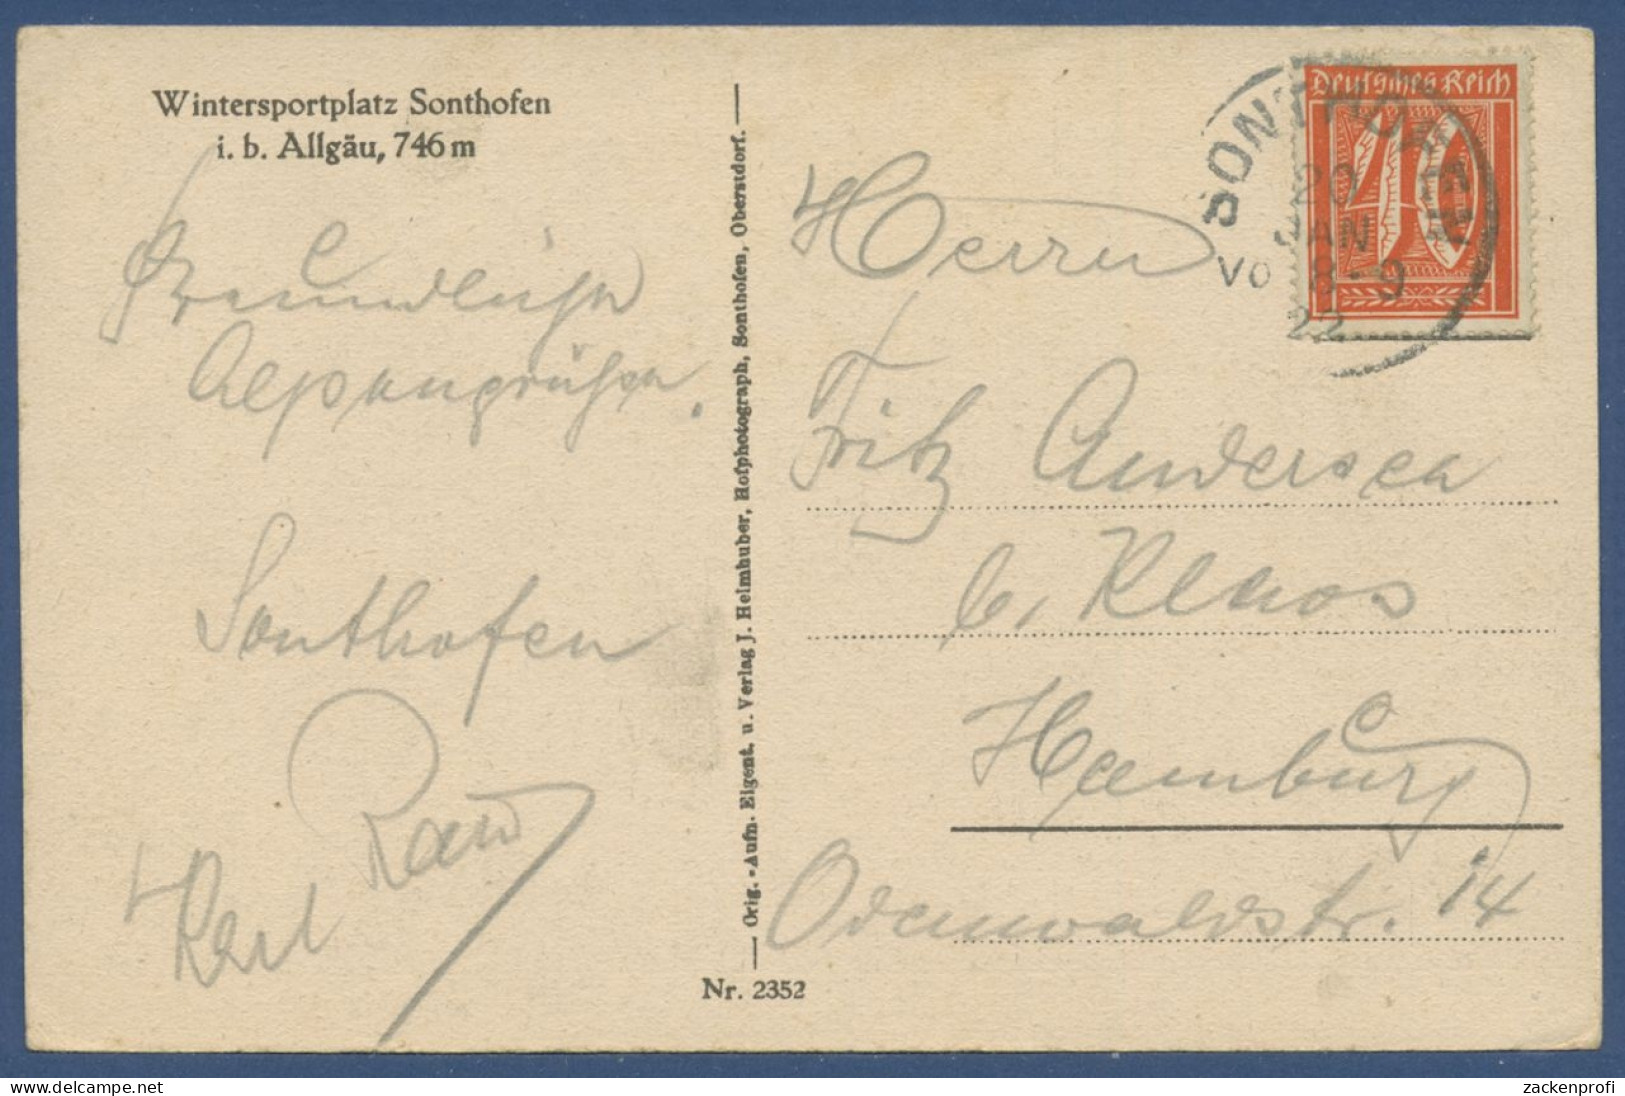 Wintersportplatz Sonthofen
i. b. Allgäu, 746 m
Freundliche
Alpengrüsse.
Sonthofen
Karl
Orig.-Aufn. Eigent. u. Verlag J. Heimhuber, Hofphotograph, Sonthofen, Oberstdorf.
Nr. 2352
Deutsches Reich
40
SONTHOFEN
20
JAN
VO 8-9
22
Herrn
Fritz Andersen
b. Klaos
Hamburg
Odenwaldstr. 14
delcampe.net
zackenprofi